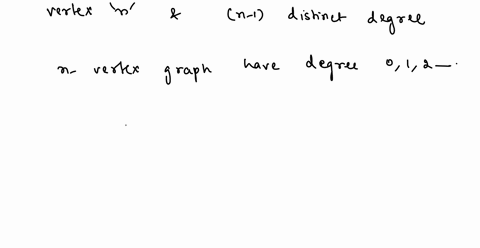 vertex 'n' & (n-1) distinct degree
n- vertex graph have degree 0, 1, 2 —.